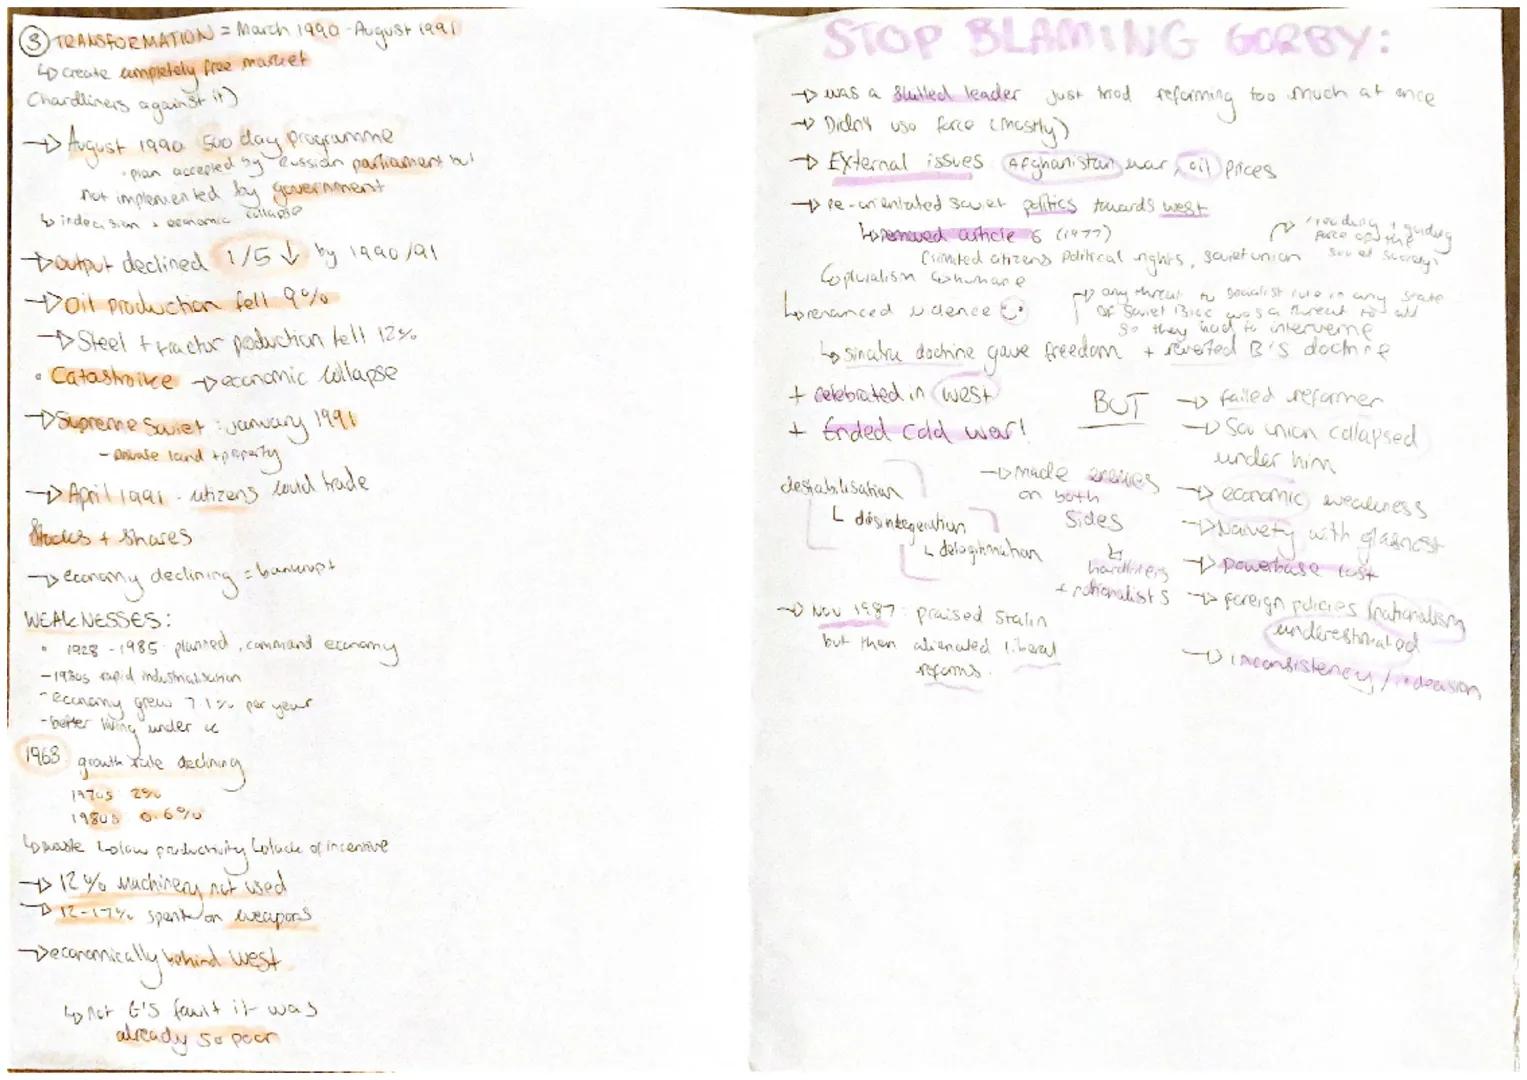 ③ TRANSFORMATION = March 1990 - August 1991
↳ create completely free market
(hardliners against it)
→ August 1990 500 day programme
• plan accepted by Russian parliament but
not implemented by government
↳ indecision & economic collapse
→ output declined 1/5 ↓ by 1990/91
→ Oil production fell 9%
→ Steel + tractor production fell 12%
• Catastroika → economic collapse
→ Supreme Soviet : January 1991
- private land + property
→ April 1991 - citizens could trade
Stocks + shares
→ economy declining = bankrupt
WEAKNESSES:
• 1928 - 1985 planned, command economy
- 1930s rapid industrialisation
- economy grew 7.1% per year
- better living under
1963 growth rate declining
1970s 2%
1980s 0.6%
↳ waste ↳ low productivity ↳ lack of incentive
→ 12% Machinery not used
→ 12-17% spent on weapons
→ economically behind West
↳ not G's fault it was
already so poor
STOP BLAMING GORBY:
→ was a skilled leader just tried reforming too much at once
→ Didn't use force (mostly)
→ External issues Afghanistan war, oil prices
→ Re-orientated soviet politics towards west
↳ removed article 6 (1977)
→ 'leading + guiding
force of the
Soviet Society'
(limited citizens political rights, soviet union
↳ pluralism ↳ humane
↳ renounced violence
→ any threat to socialist rule in any state
of Soviet Bloc was a threat to all
so they had to intervene
↳ sinatra doctrine gave freedom + reverted B'S doctrine
+ celebrated in West
+ Ended Cold war!
BUT → failed reformer
→ Sov union collapsed
under him
→ economic weakness
→ Naivety with glasnost
→ powerbase lost
→ foreign policies (nationalism
underestimated
→ inconsistency / indecision
→ made enemies
on both
Sides
↳
hardliners
+ nationalists
destabilisation
∟ disintegeration
∟ delegitimation
→ Nov 1987: praised Stalin
but then alienated liberal
reforms.